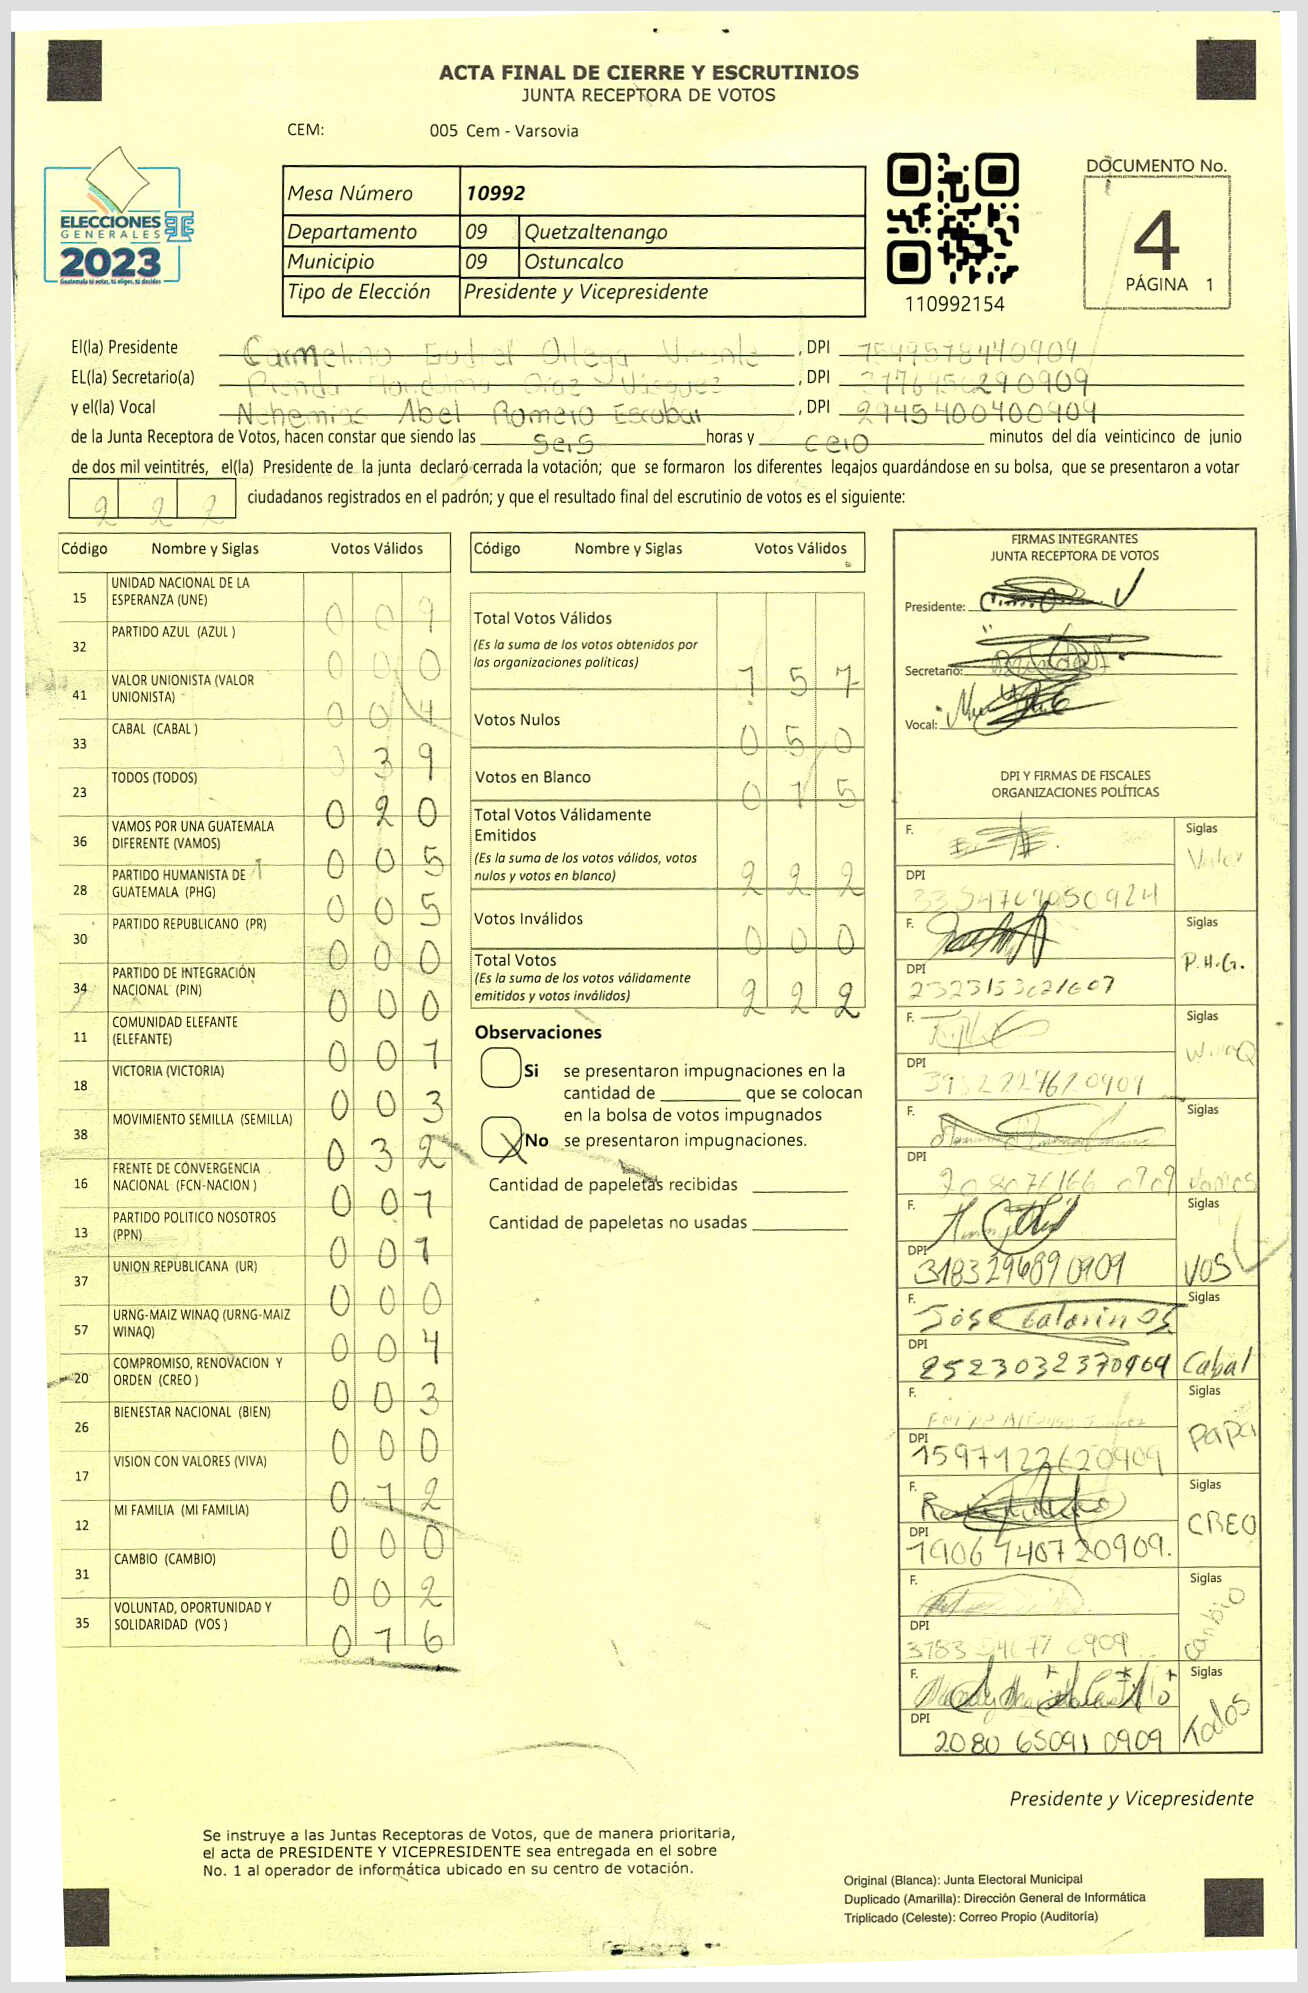 ACTA FINAL DE CIERRE Y ESCRUTINIOS
JUNTA RECEPTORA DE VOTOS
CEM: 005 Cem - Varsovia
ELECCIONES
GENERALES
2023
Guatemala tú votas, tú eliges, tú decides
Mesa Número 10992
Departamento 09 Quetzaltenango
Municipio 09 Ostuncalco
Tipo de Elección Presidente y Vicepresidente
110992154
DOCUMENTO No.
4
PÁGINA 1
El(la) Presidente Carmelino Ortega Vicente , DPI
EL(la) Secretario(a) Díaz Vásquez , DPI
y el(la) Vocal Nehemias Abel Romero Escobar , DPI 2945400400909
de la Junta Receptora de Votos, hacen constar que siendo las seis horas y cero minutos del día veinticinco de junio
de dos mil veintitrés, el(la) Presidente de la junta declaró cerrada la votación; que se formaron los diferentes legajos guardándose en su bolsa, que se presentaron a votar
2 2 2 ciudadanos registrados en el padrón; y que el resultado final del escrutinio de votos es el siguiente:
Código Nombre y Siglas Votos Válidos
15 UNIDAD NACIONAL DE LA ESPERANZA (UNE) 0 0 9
32 PARTIDO AZUL (AZUL ) 0 0 0
41 VALOR UNIONISTA (VALOR UNIONISTA) 0 0 4
33 CABAL (CABAL ) 0 3 9
23 TODOS (TODOS) 0 2 0
36 VAMOS POR UNA GUATEMALA DIFERENTE (VAMOS) 0 0 5
28 PARTIDO HUMANISTA DE GUATEMALA (PHG) 0 0 5
30 PARTIDO REPUBLICANO (PR) 0 0 0
34 PARTIDO DE INTEGRACIÓN NACIONAL (PIN) 0 0 0
11 COMUNIDAD ELEFANTE (ELEFANTE) 0 0 1
18 VICTORIA (VICTORIA) 0 0 3
38 MOVIMIENTO SEMILLA (SEMILLA) 0 3 2
16 FRENTE DE CONVERGENCIA NACIONAL (FCN-NACION ) 0 0 1
13 PARTIDO POLITICO NOSOTROS (PPN) 0 0 1
37 UNION REPUBLICANA (UR) 0 0 0
57 URNG-MAIZ WINAQ (URNG-MAIZ WINAQ) 0 0 4
20 COMPROMISO, RENOVACION Y ORDEN (CREO ) 0 0 3
26 BIENESTAR NACIONAL (BIEN) 0 0 0
17 VISION CON VALORES (VIVA) 0 1 2
12 MI FAMILIA (MI FAMILIA) 0 0 0
31 CAMBIO (CAMBIO) 0 0 2
35 VOLUNTAD, OPORTUNIDAD Y SOLIDARIDAD (VOS ) 0 1 6
Código Nombre y Siglas Votos Válidos
Total Votos Válidos 1 5 7
(Es la suma de los votos obtenidos por
las organizaciones políticas)
Votos Nulos 0 5 0
Votos en Blanco 0 1 5
Total Votos Válidamente
Emitidos 2 2 2
(Es la suma de los votos válidos, votos
nulos y votos en blanco)
Votos Inválidos 0 0 0
Total Votos 2 2 2
(Es la suma de los votos válidamente
emitidos y votos inválidos)
Observaciones
Si se presentaron impugnaciones en la
cantidad de ________ que se colocan
en la bolsa de votos impugnados
X No se presentaron impugnaciones.
Cantidad de papeletas recibidas
Cantidad de papeletas no usadas
FIRMAS INTEGRANTES
JUNTA RECEPTORA DE VOTOS
Presidente:
Secretario:
Vocal:
DPI Y FIRMAS DE FISCALES
ORGANIZACIONES POLÍTICAS
F. Siglas Valor
DPI
F. Siglas P.H.G.
DPI
F. Siglas WinaQ
DPI
F. Siglas Vamos
DPI
F. Siglas VOS
DPI 3183296890909
F. Siglas Cabal
DPI 2523032370909
F. Siglas PaPa
DPI 1597122620909
F. Siglas CREO
DPI 1906140720909.
F. Siglas Cambio
DPI
F. Siglas Todos
DPI 2080 65091 0909
Presidente y Vicepresidente
Se instruye a las Juntas Receptoras de Votos, que de manera prioritaria,
el acta de PRESIDENTE Y VICEPRESIDENTE sea entregada en el sobre
No. 1 al operador de informática ubicado en su centro de votación.
Original (Blanca): Junta Electoral Municipal
Duplicado (Amarilla): Dirección General de Informática
Triplicado (Celeste): Correo Propio (Auditoría)